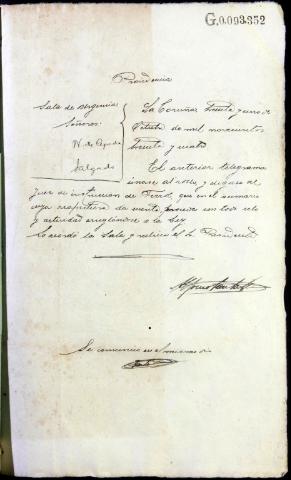 G.0.093.352
Providencia
Sala de urgencia
Señores:
Salgado
La Coruña treinta y uno de
de mil novecientos
treinta y cuatro
El anterior telegrama
únase al rollo, y dígase al
Juez de instrucción de Ferrol, que en el sumario
cuya da cuenta, proceda con todo celo
y actividad a la Ley
Lo acordó la Sala y rubrica el Sr Presidente
Se en el mismo día